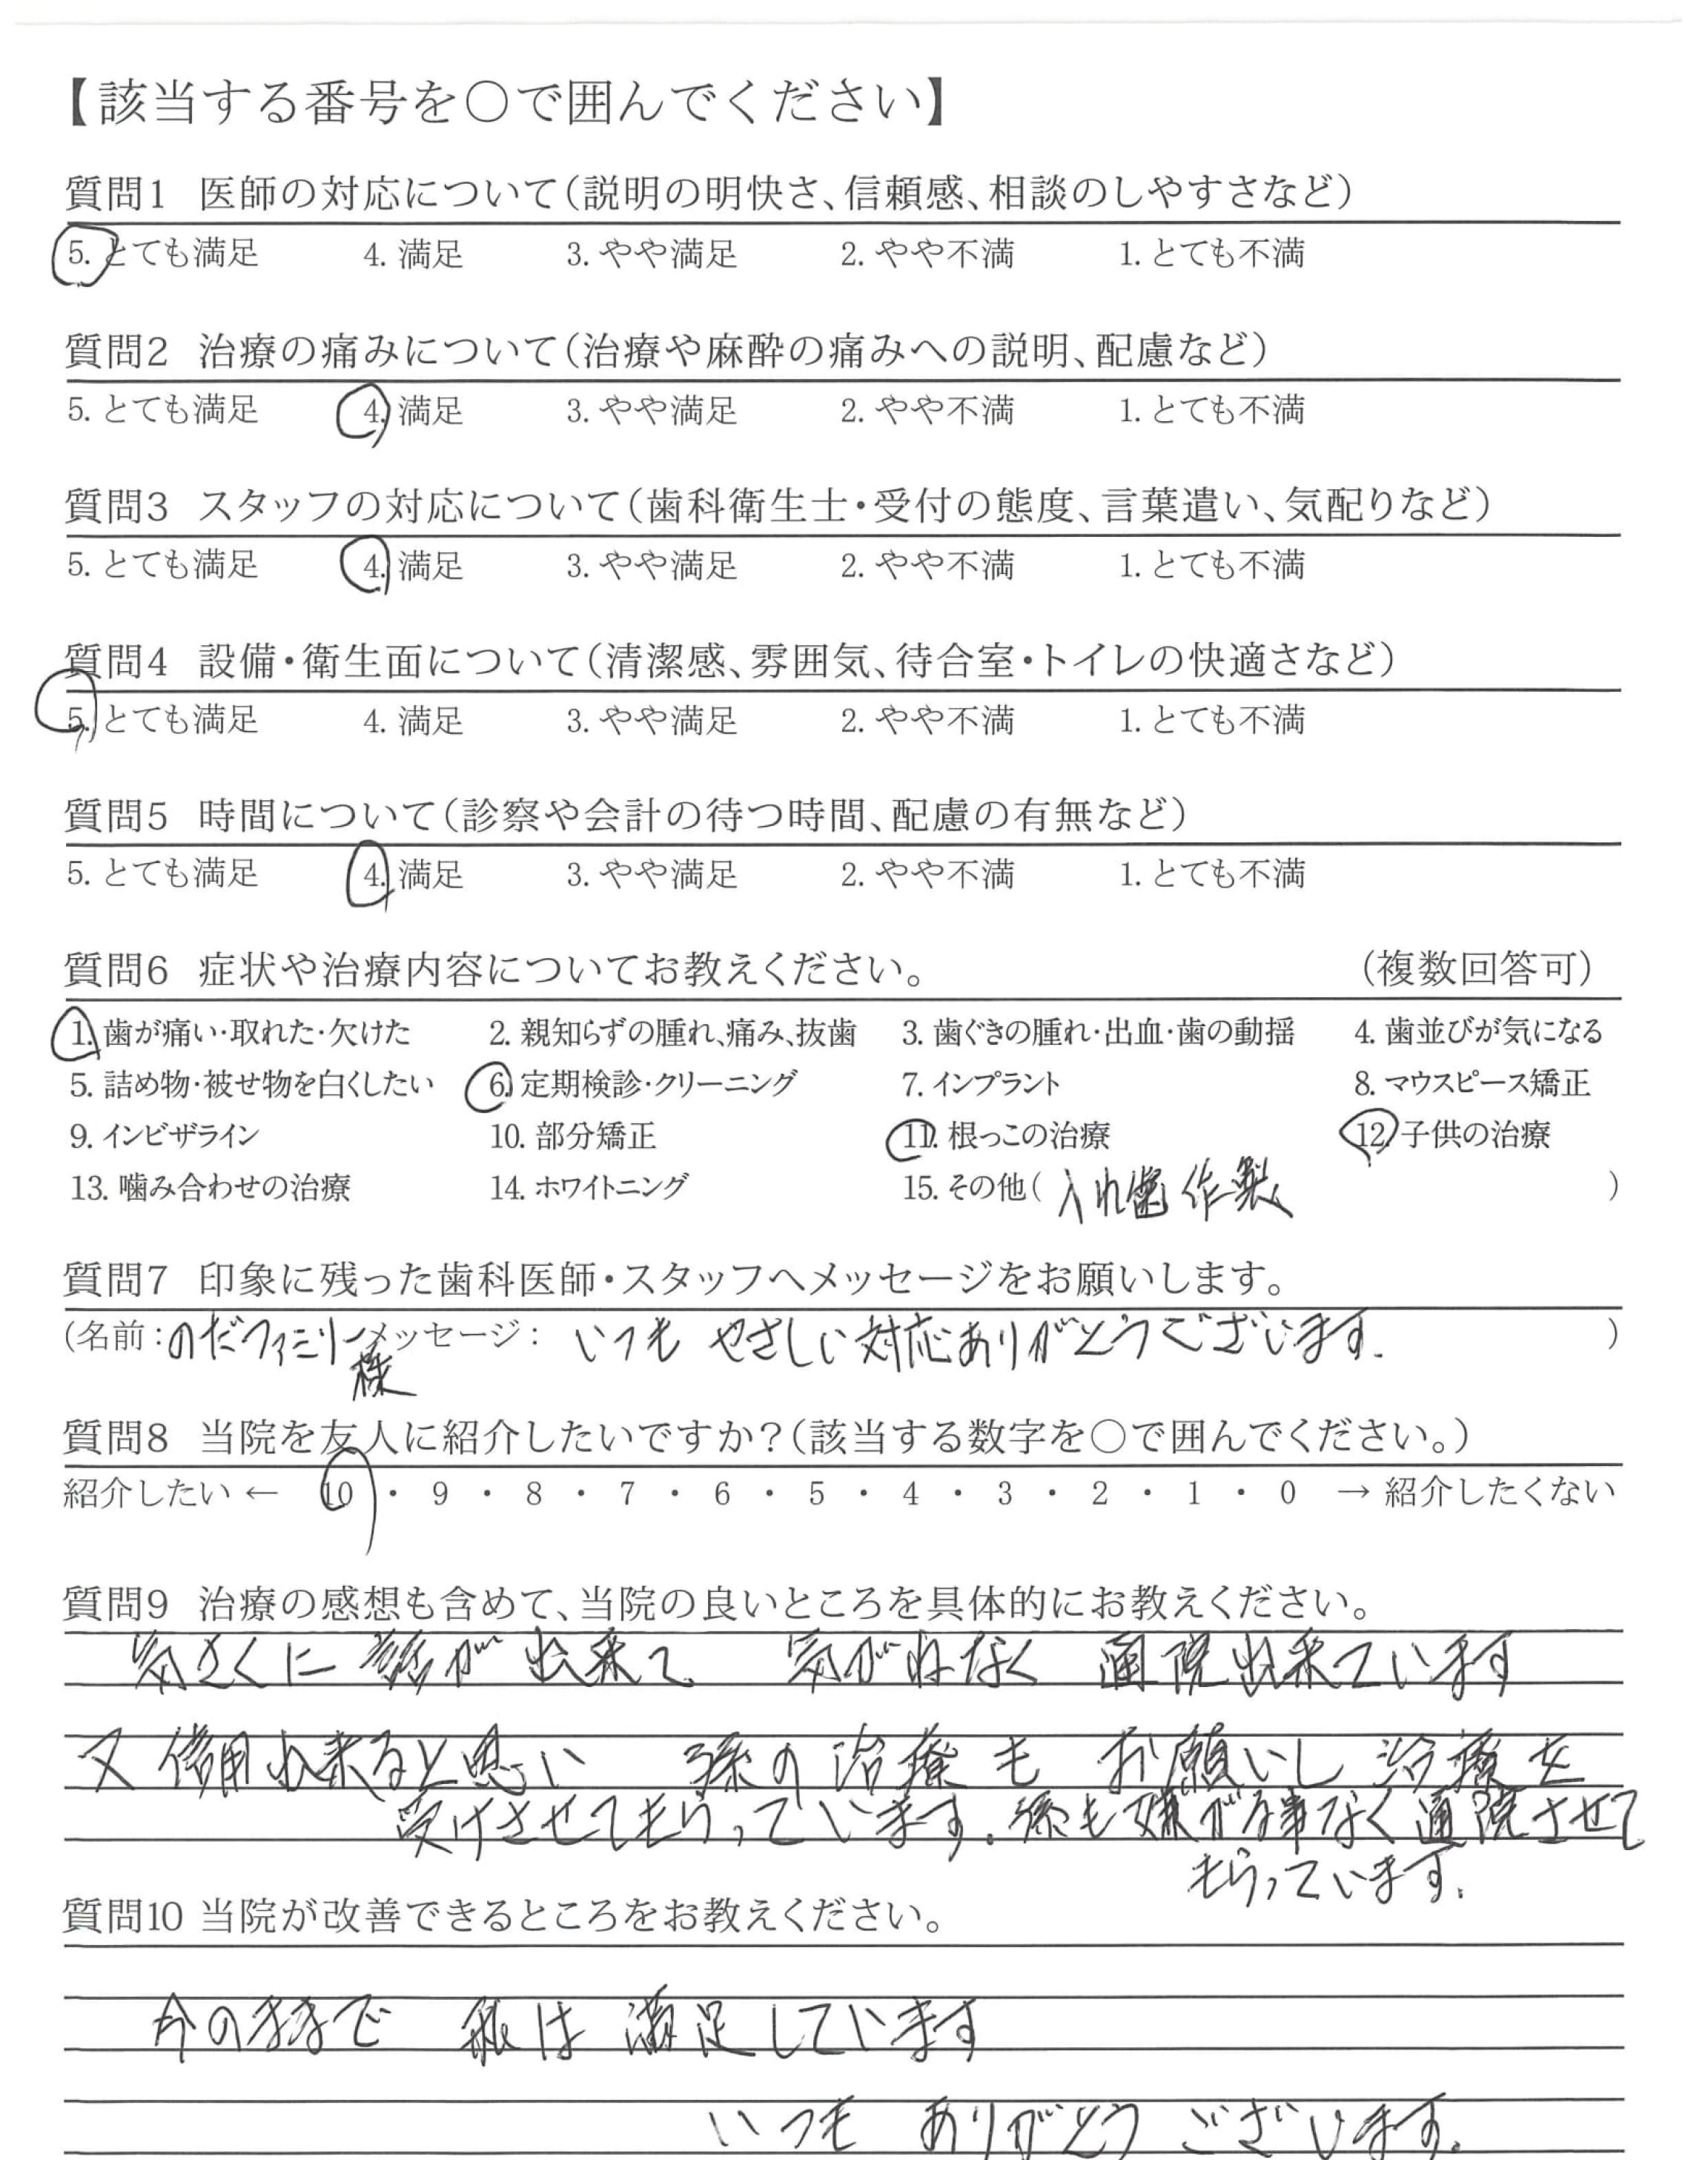 【該当する番号を○で囲んでください】
質問1 医師の対応について(説明の明快さ、信頼感、相談のしやすさなど)
5. とても満足 4. 満足 3. やや満足 2. やや不満 1. とても不満
質問2 治療の痛みについて(治療や麻酔の痛みへの説明、配慮など)
5. とても満足 4. 満足 3. やや満足 2. やや不満 1. とても不満
質問3 スタッフの対応について(歯科衛生士・受付の態度、言葉遣い、気配りなど)
5. とても満足 4. 満足 3. やや満足 2. やや不満 1. とても不満
質問4 設備・衛生面について(清潔感、雰囲気、待合室・トイレの快適さなど)
5. とても満足 4. 満足 3. やや満足 2. やや不満 1. とても不満
質問5 時間について(診察や会計の待つ時間、配慮の有無など)
5. とても満足 4. 満足 3. やや満足 2. やや不満 1. とても不満
質問6 症状や治療内容についてお教えください。 (複数回答可)
1. 歯が痛い・取れた・欠けた 2. 親知らずの腫れ、痛み、抜歯 3. 歯ぐきの腫れ・出血・歯の動揺 4. 歯並びが気になる
5. 詰め物・被せ物を白くしたい 6. 定期検診・クリーニング 7. インプラント 8. マウスピース矯正
9. インビザライン 10. 部分矯正 11. 根っこの治療 12. 子供の治療
13. 噛み合わせの治療 14. ホワイトニング 15. その他( 入れ歯作製 )
質問7 印象に残った歯科医師・スタッフへメッセージをお願いします。
(名前：のだファミリー様 メッセージ： いつも やさしい対応ありがとうございます. )
質問8 当院を友人に紹介したいですか?(該当する数字を○で囲んでください。)
紹介したい ← 10 ・ 9 ・ 8 ・ 7 ・ 6 ・ 5 ・ 4 ・ 3 ・ 2 ・ 1 ・ 0 → 紹介したくない
質問9 治療の感想も含めて、当院の良いところを具体的にお教えください。
気さくに 話が 出来て 気がねなく 通院出来ています
又 信用出来ると思い 孫の 治療 も お願いし 治療を
受けさせてもらっています. 孫も嫌がる事なく通院させて
もらっています.
質問10 当院が改善できるところをお教えください。
今のままで 私は 満足しています
いつも ありがとう ございます.